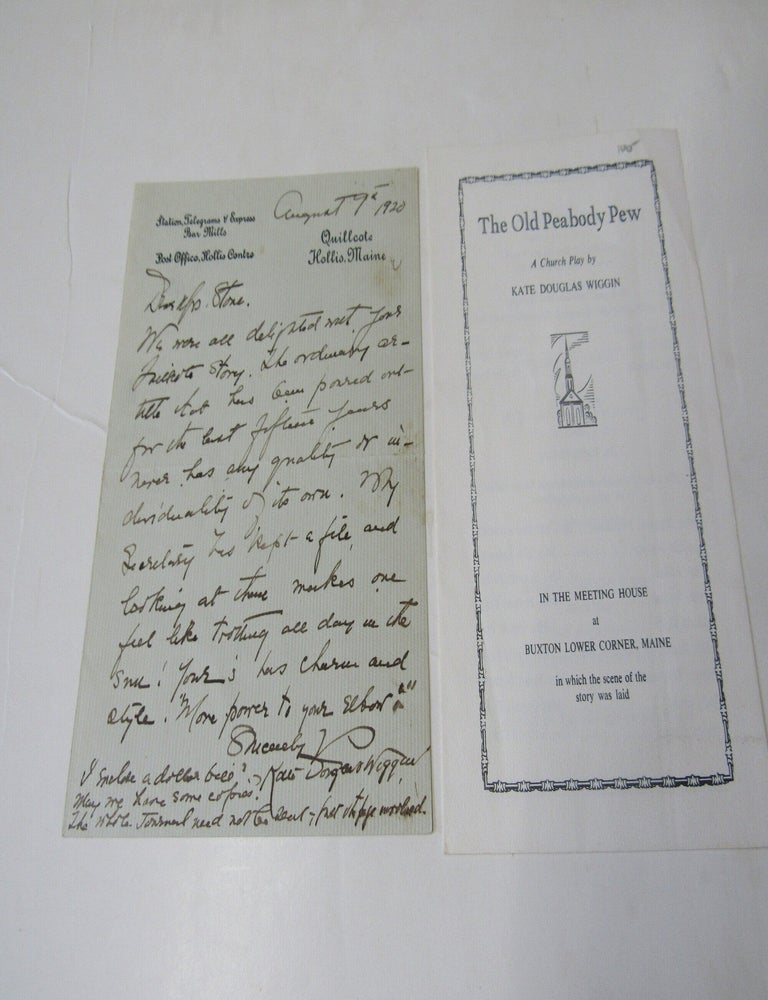 August 9th 1920
Station, Telegrams & Express
Bar Mills
Post Office, Hollis Centre
Quillcote
Hollis, Maine
Dear Stone.
We were all delighted with your
Quillcote Story. The ordinary ar-
ticle that has been poured out
for the last fifteen years
never has any quality or in-
dividuality of its own. My
Secretary has kept a file, and
looking at them makes one
feel like trotting all day in the
sun! Your's has charm and
style. "More power to your Elbow!"
Sincerely
Kate Douglas Wiggin
I enclose a dollar bill.
May we have some copies?
The whole Journal need not be sent – just the page involved.
100
The Old Peabody Pew
A Church Play by
KATE DOUGLAS WIGGIN
IN THE MEETING HOUSE
at
BUXTON LOWER CORNER, MAINE
in which the scene of the
story was laid